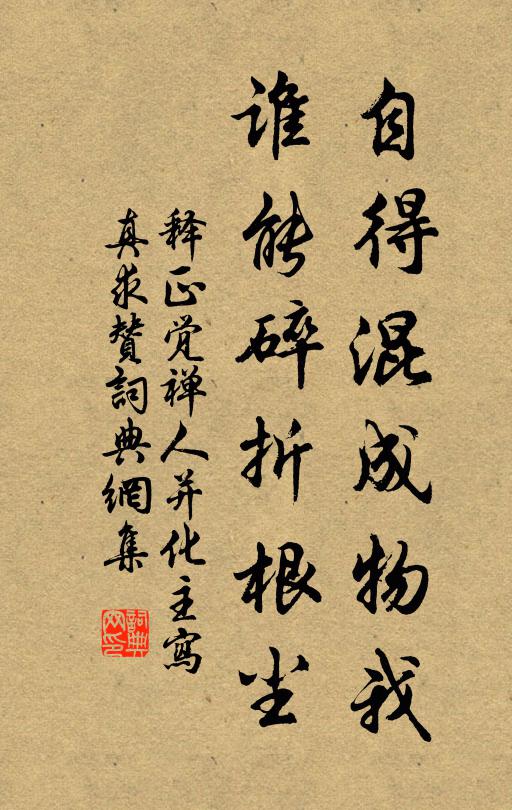 自得混成物我
谁能碎折根尘
释正觉禅人并化主寫
真求贊詞典網集
詞典网印